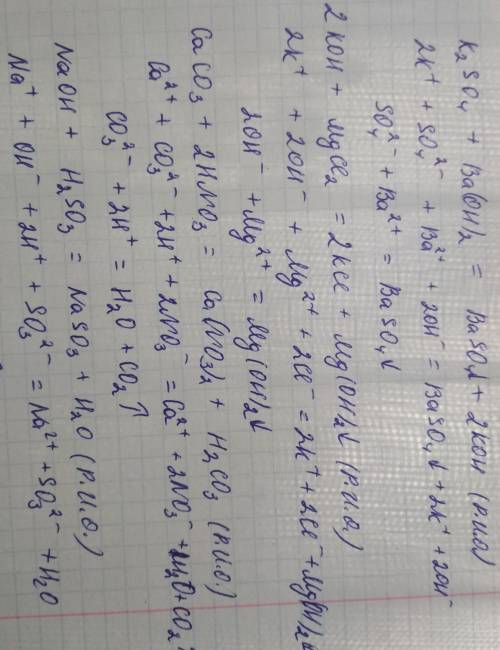 K₂SO₄ + Ba(OH)₂ = BaSO₄↓ + 2KOH (р.и.о)
2K⁺ + SO₄²⁻ + Ba²⁺ + 2OH⁻ = BaSO₄↓ + 2K⁺ + 2OH⁻
SO₄²⁻ + Ba²⁺ = BaSO₄↓
2KOH + MgCl₂ = 2KCl + Mg(OH)₂↓ (р.и.о.)
2K⁺ + 2OH⁻ + Mg²⁺ + 2Cl⁻ = 2K⁺ + 2Cl⁻ + Mg(OH)₂↓
2OH⁻ + Mg²⁺ = Mg(OH)₂↓
CaCO₃ + 2HNO₃ = Ca(NO₃)₂ + H₂CO₃ (р.и.о.)
Ca²⁺ + CO₃²⁻ + 2H⁺ + 2NO₃⁻ = Ca²⁺ + 2NO₃⁻ + H₂O + CO₂
CO₃²⁻ + 2H⁺ = H₂O + CO₂↑
NaOH + H₂SO₃ = NaSO₃ + H₂O (р.и.о.)
Na⁺ + OH⁻ + 2H⁺ + SO₃²⁻ = Na²⁺ + SO₃²⁻ + H₂O